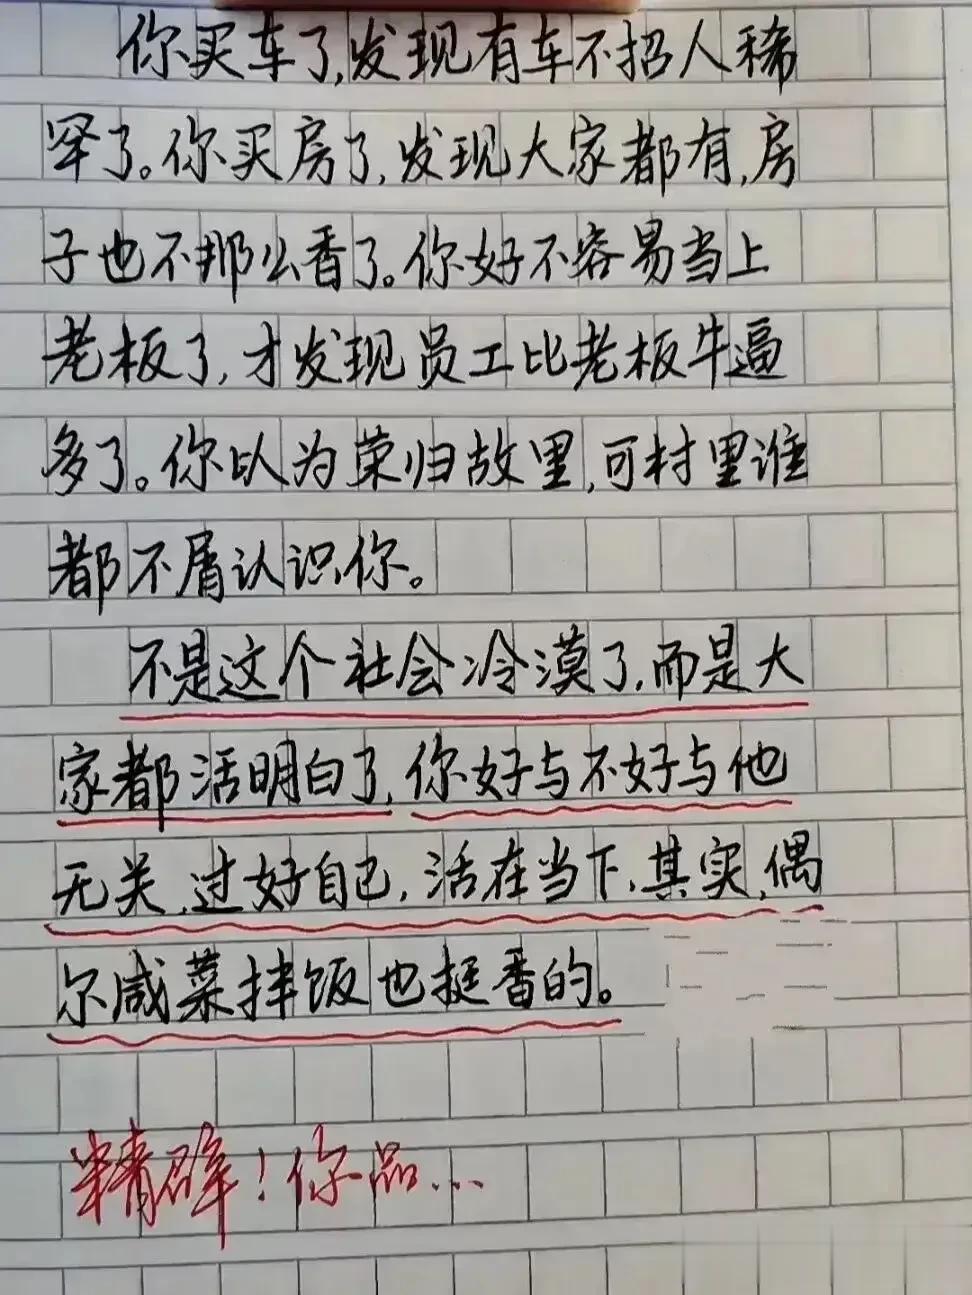 你买车了,发现有车不招人稀
罕了。你买房了,发现大家都有,房
子也不那么香了。你好不容易当上
老板了,才发现员工比老板牛逼
多了。你以为荣归故里,可村里谁
都不屑认识你。
不是这个社会冷漠了,而是大
家都活明白了,你好与不好与他
无关,过好自己,活在当下,其实,偶
尔咸菜拌饭也挺香的。
精辟!你品...